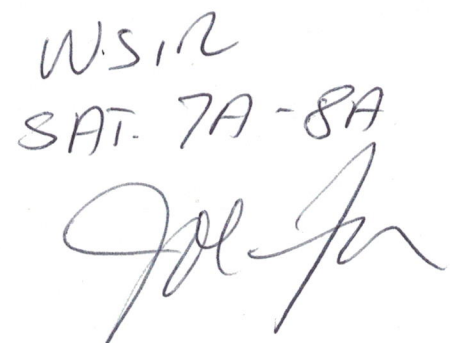 W.S.I.R
SAT. 7A-8A